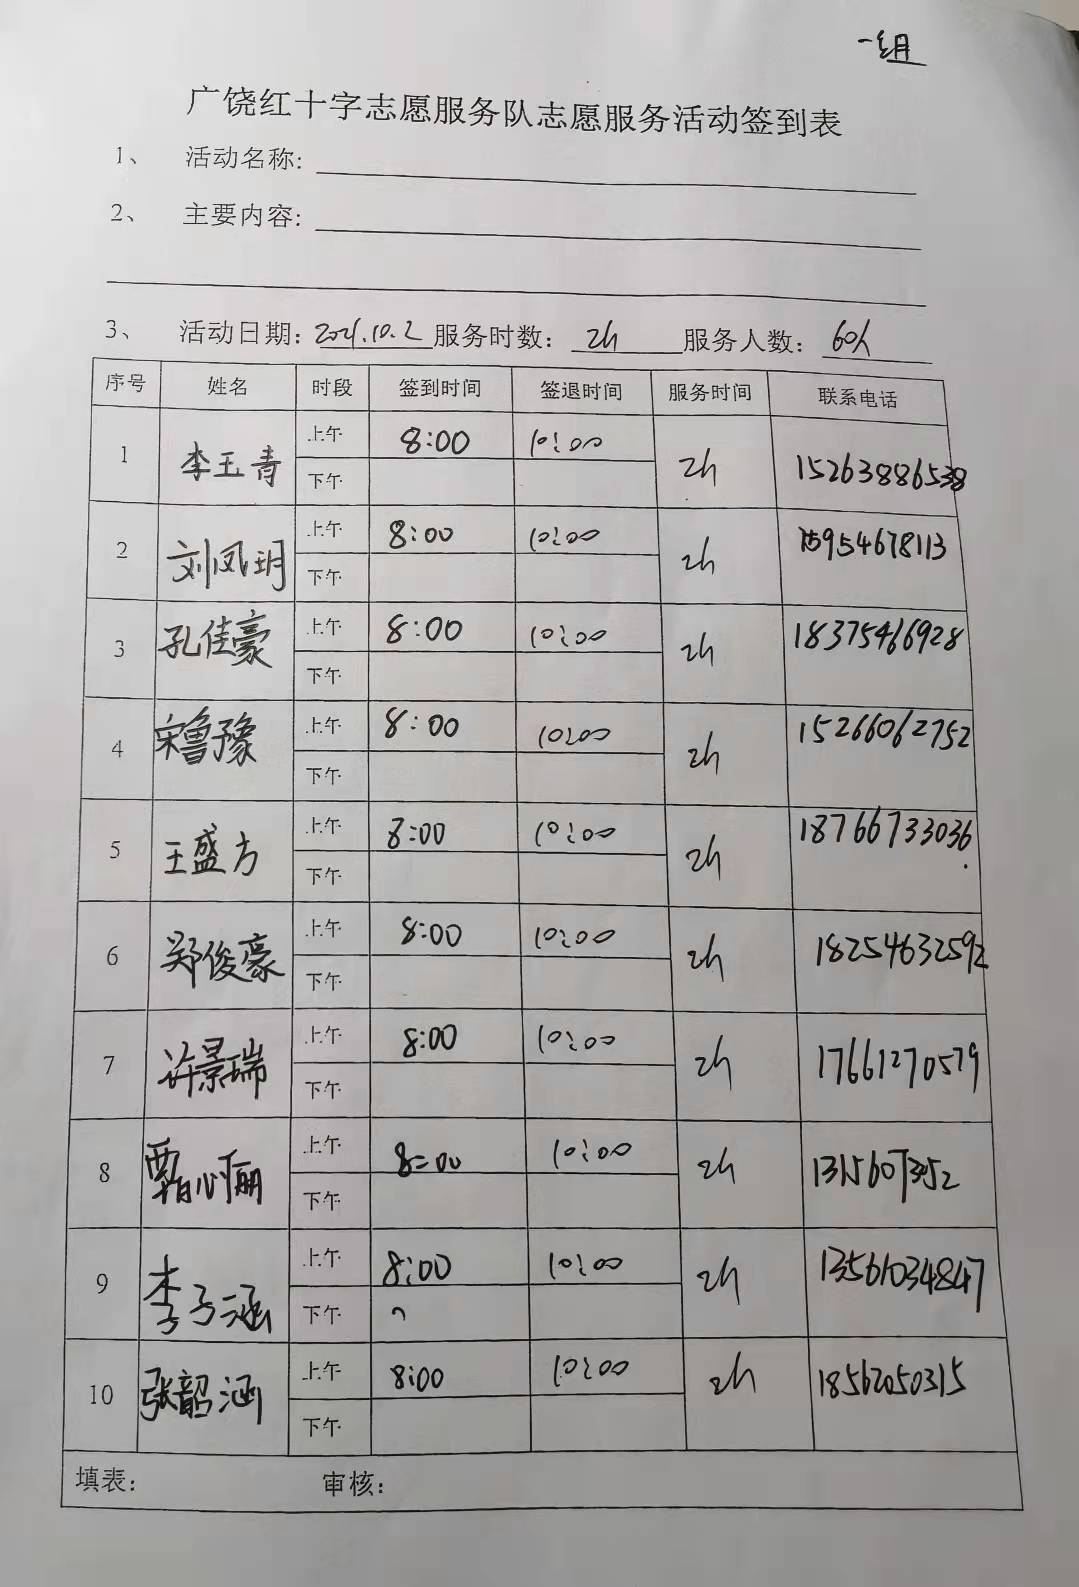 一组
广饶红十字志愿服务队志愿服务活动签到表
1、 活动名称:
2、 主要内容:
3、 活动日期: 2021.10.2 服务时数: 2h 服务人数: 60人
序号 姓名 时段 签到时间 签退时间 服务时间 联系电话
1 李玉青 上午 8:00 10:00 2h 15263886538
下午
2 刘凤玥 上午 8:00 10:00 2h 15954678113
下午
3 孔佳豪 上午 8:00 10:00 2h 18375466928
下午
4 宋鲁豫 上午 8:00 10:00 2h 15266062752
下午
5 王盛方 上午 8:00 10:00 2h 18766733036
下午
6 郑俊豪 上午 8:00 10:00 2h 18254632592
下午
7 许景瑞 上午 8:00 10:00 2h 17661270579
下午
8 上午 8:00 10:00 2h
下午
9 李子涵 上午 8:00 10:00 2h 13561034847
下午
10 张韶涵 上午 8:00 10:00 2h 18562050315
下午
填表: 审核: